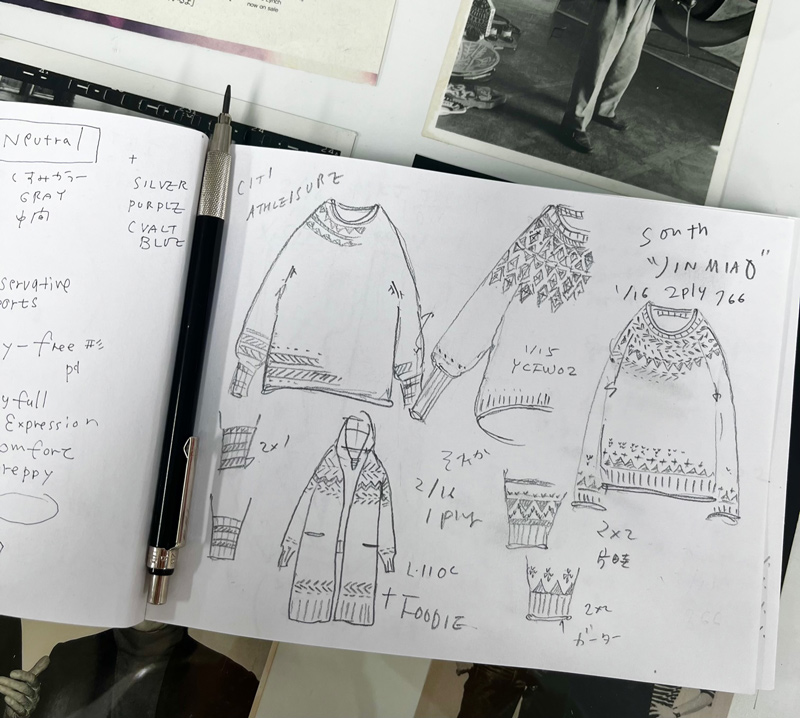 now on sale
Neutral
くすみカラー
GRAY
中間
+
SILVER
PURPLE
CVALT
BLUE
servative
orts
y-free
pd
yful
Expression
omfort
reppy
CITI
ATHLEISURE
South
"JINMIAO"
1/16 2ply 766
1/15
YCFW02
2x1
それか
2/16
1ply
L-110C
+
FOODIE
2x2
片畦
2x2
ガーター